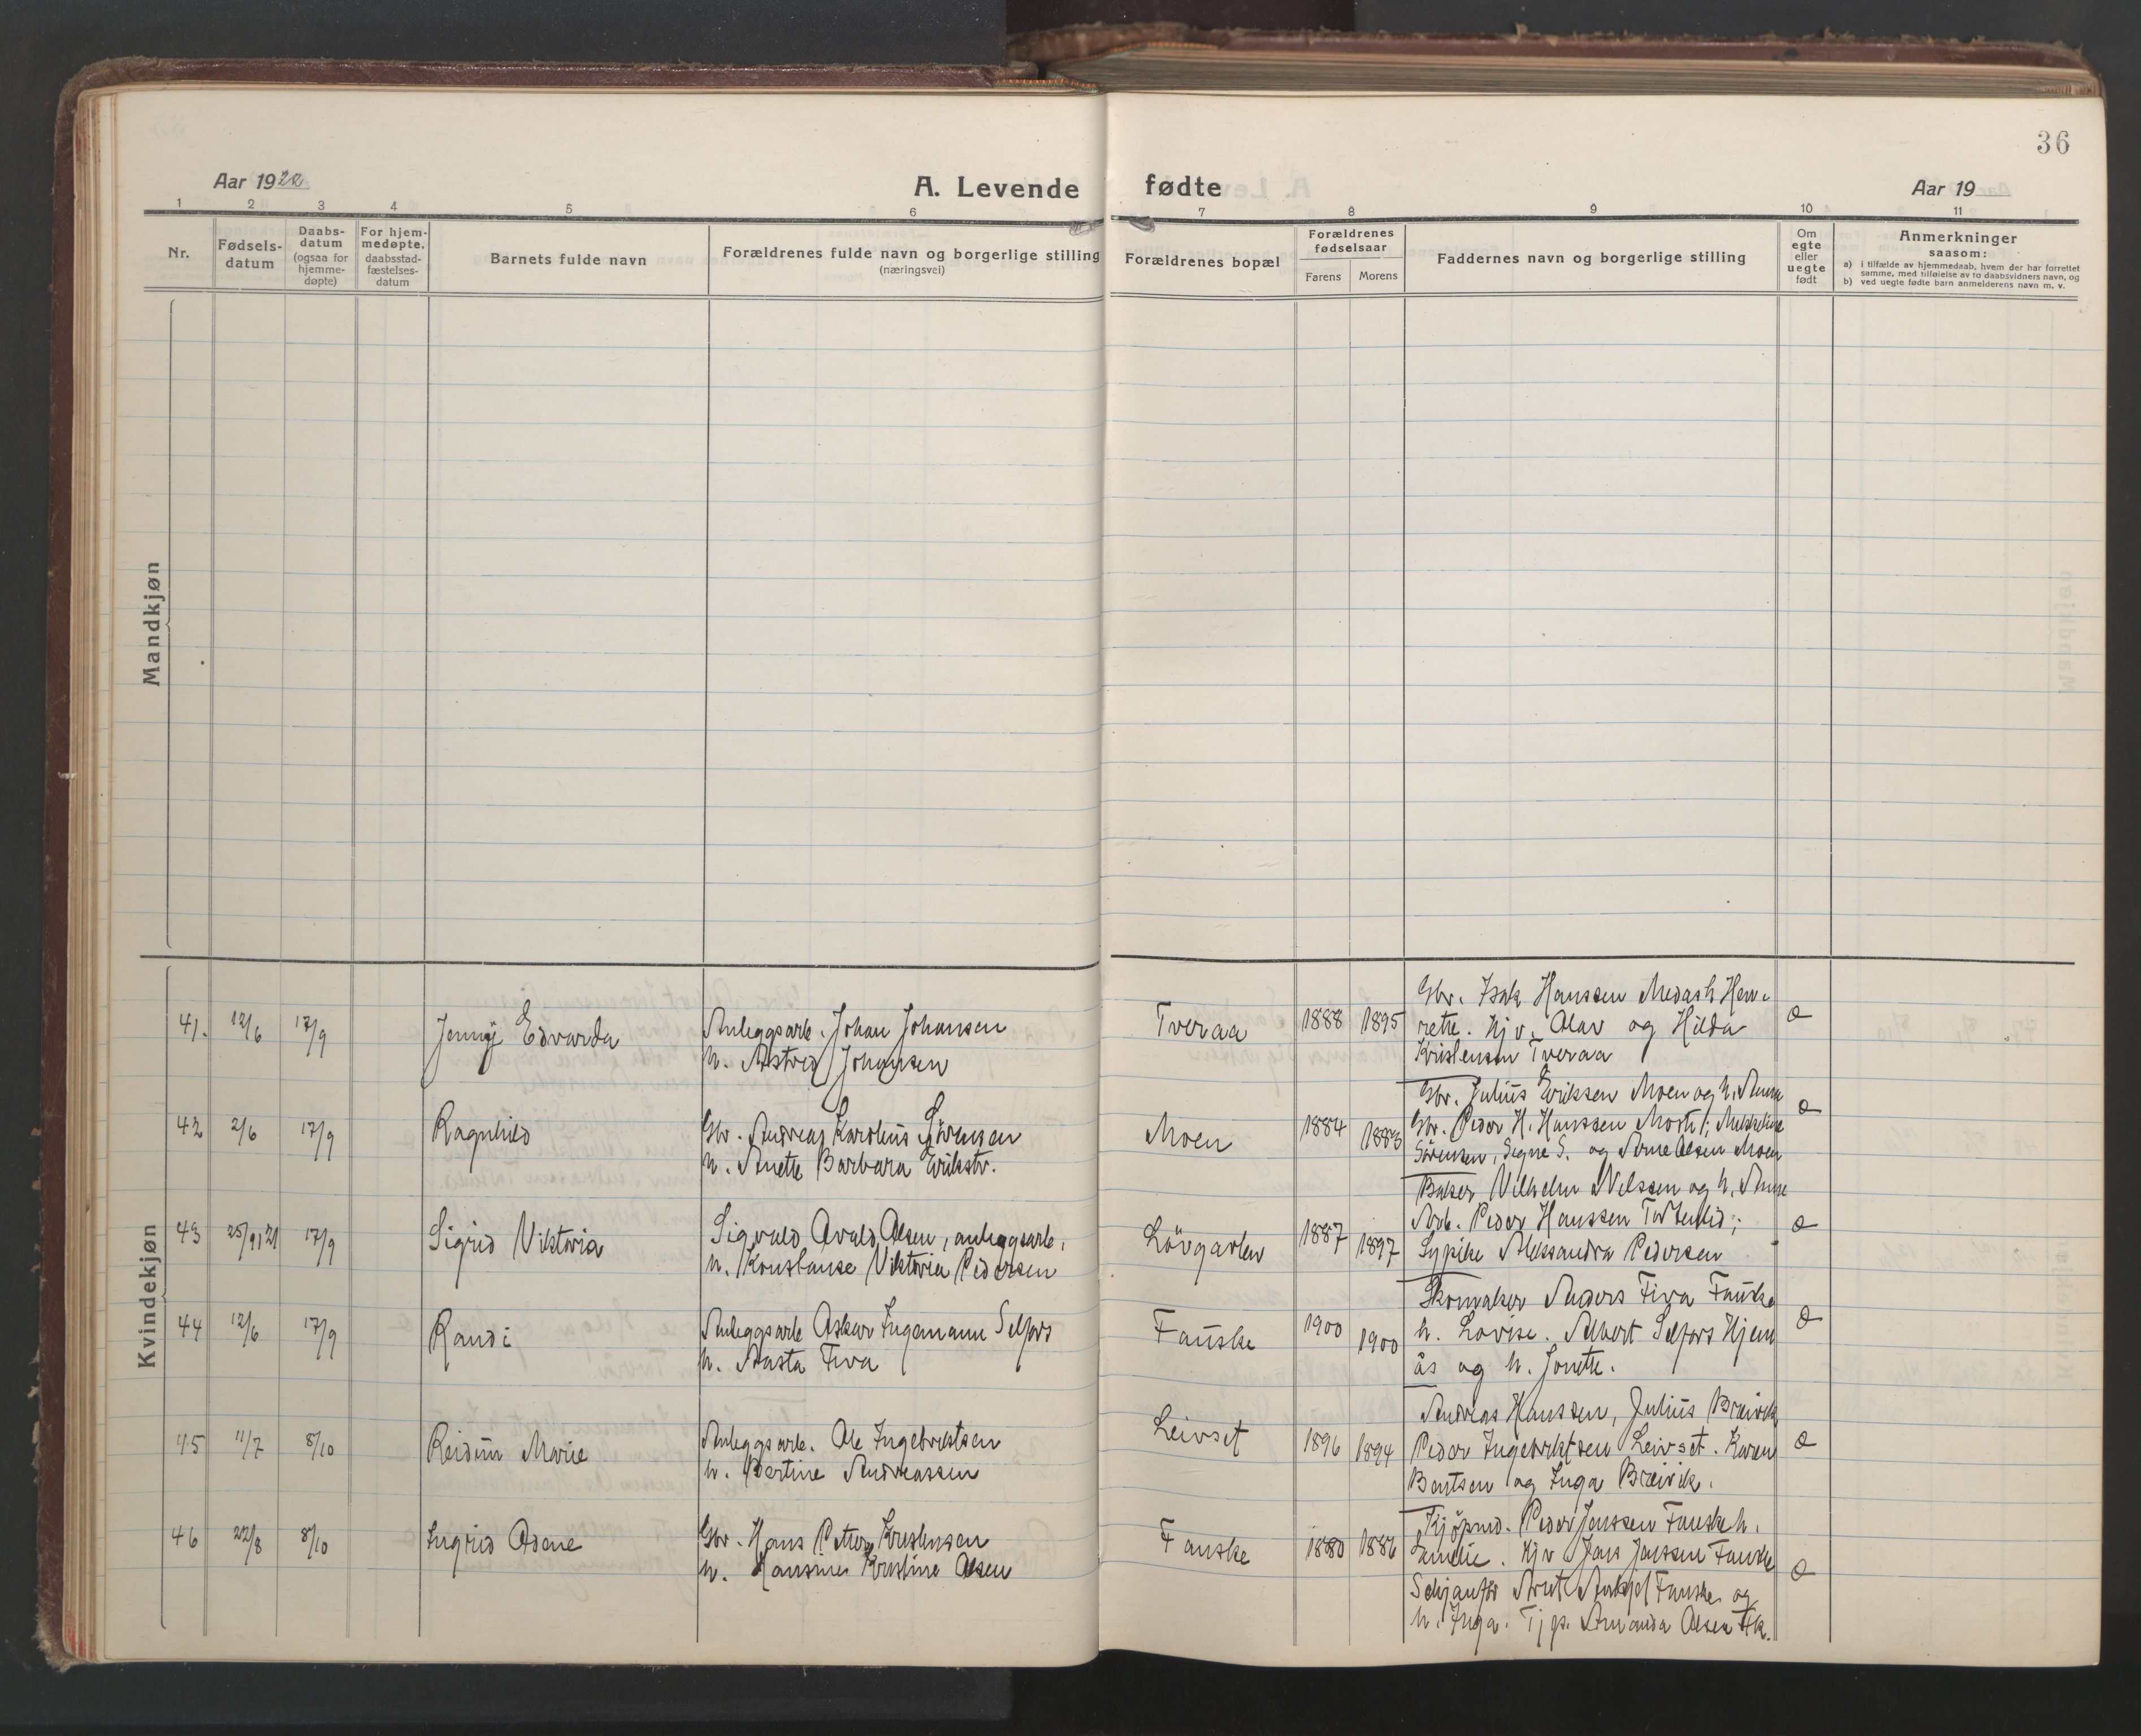 36
Aar 1922
A. Levende fødte
Aar 19
1 2 3 4 5 6 7 8 9 10 11
Nr.
Fødsels-
datum
Daabs-
datum
(ogsaa for
hjemme-
døpte)
For hjem-
medøpte,
daabsstad-
fæstelses-
datum
Barnets fulde navn
Forældrenes fulde navn og borgerlige stilling
(næringsvei)
Forældrenes bopæl
Forældrenes
fødselsaar
Farens Morens
Faddernes navn og borgerlige stilling
Om
egte
eller
uegte
født
Anmerkninger
saasom:
a) i tilfælde av hjemmedaab, hvem der har forrettet
samme, med tilføielse av to daabsvidners navn, og
b) ved uegte fødte barn anmelderens navn m. v.
Mandkjøn
Kvindekjøn
41. 12/6 17/9 Jenny Edvarda
Anleggsarb. Johan Johansen
h. Astrid Johansen
Tveraa 1888 1895
Gbr. Isak Hanssen Medash Hen-
rette. Kjv. Olav og Hilda
Kristensen Tveraa
42 2/6 17/9 Ragnhild
Gbr. Andreas Karolius Sörensen
h. Anette Barbara Erikstr.
Moen 1884 1883
Gbr. Julius Eriksen Moen og h. Anna
Gbr. Peder H. Hanssen
Sörensen, Signe S. og Arne Olsen Moen
43 25/9 21 17/9 Sigrid Viktoria
Sigvald Ovald Olsen, anleggsarb.
h. Konstanse Viktoria Pedersen
Lövgavlen 1887 1897
Baker Vilhelm Nilssen og h. Anne
Arb. Peder Hanssen
Sypike Aleksandra Pedersen
44 12/6 17/9 Randi
Anleggsarb Oskar Ingemann Selfors
h. Aasta Fiva
Fauske 1900 1900
Skomaker Anders Fiva Fauske
h. Lovise. Albert Selfors Hjem
ås og h. Jonette.
45 11/7 8/10 Reidun Marie
Anleggsarb. Ole Ingebriktsen
h. Bertine Andreassen
Leivset 1896 1894
Andreas Hanssen, Julius Breivik
Peder Ingebriktsen Leivset. Karen
Bentsen og Inga Breivik.
46 22/8 8/10 Ingrid Odene
Gbr. Hans Petter Kristensen
h. Hansine Kristine Olsen
Fauske 1880 1886
Kjöpmd. Peder Jenssen Fauske h.
Amelie. Kjv Jens Jenssen Fauske
Arnt Fauske og
h. Inga. Tjp. Amanda Olsen Fk.